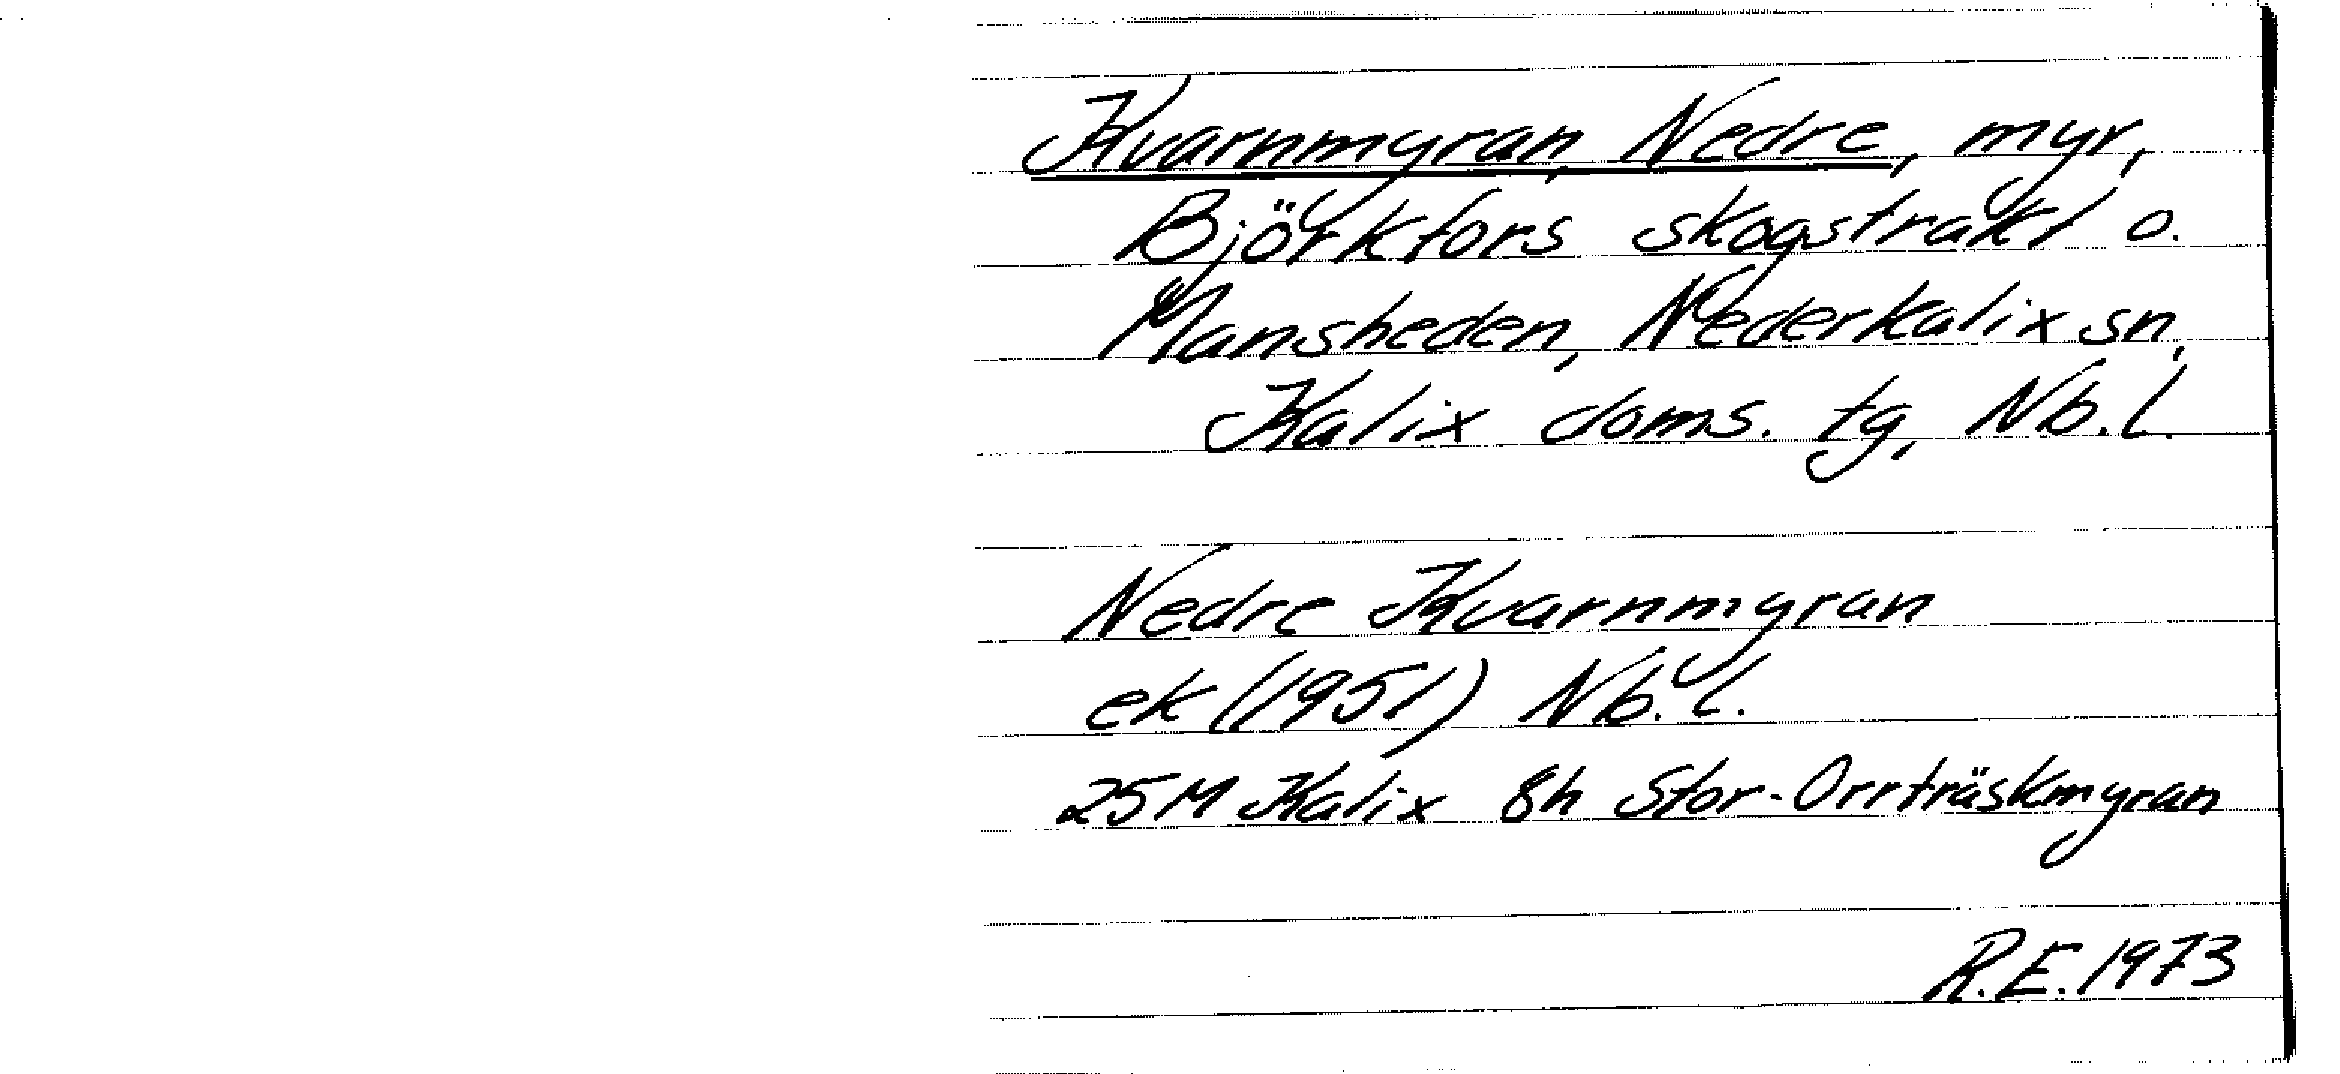 Kvarnmyran, Nedre, myr,
Björkfors skogstrakt o.
Månsheden, Nederkalix sn,
Kalix doms. tg, Nb.l.
Nedre Kvarnmyran
ek (1951) Nb.l.
25M Kalix 8h Stor-Orrträskmyran
R.E. 1973